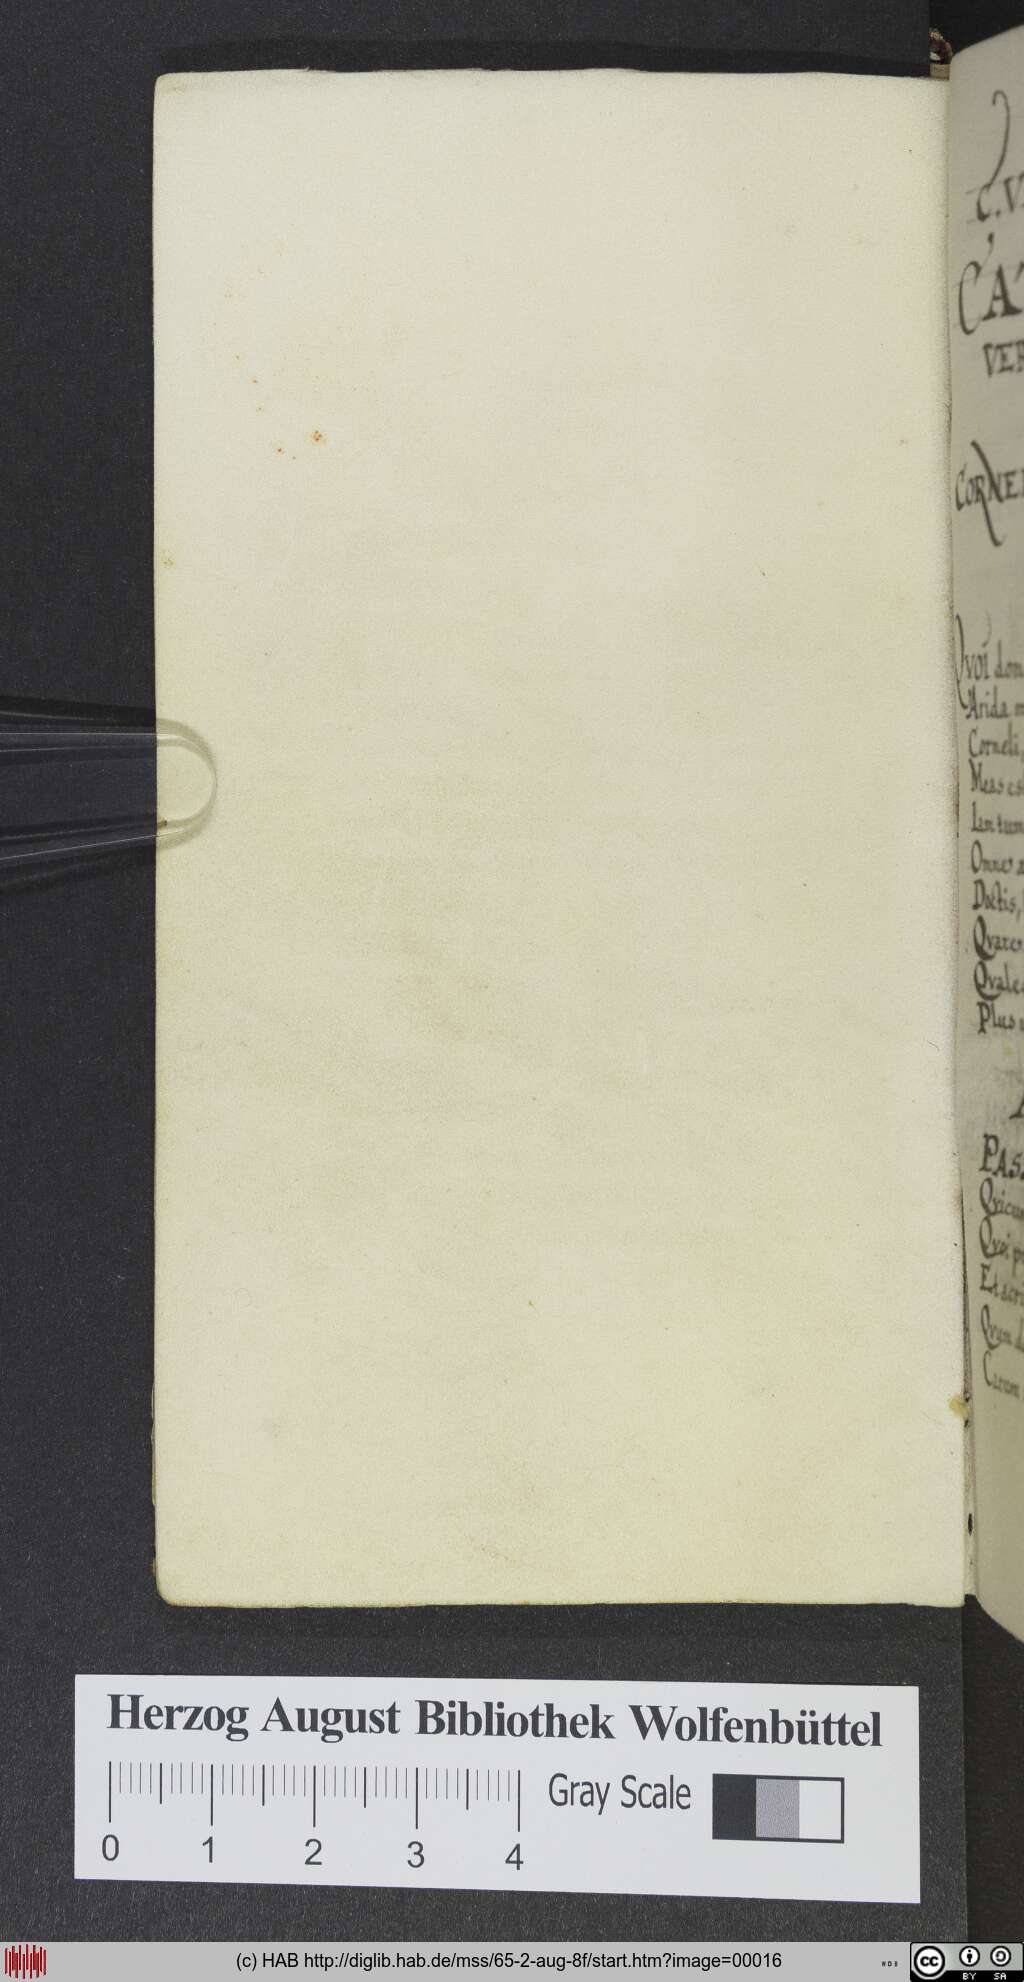 C. V
CAT
VER
CORNEL
Qvoi don
Arida m
Corneli,
Meas es
Iam tum
Omne a
Doctis,
Qvare
Qvale
Plus v
A
PAS
Qvicun
Qvoi p
Et acri
Qvum d
Carum
Herzog August Bibliothek Wolfenbüttel
Gray Scale
0 1 2 3 4
(c) HAB http://diglib.hab.de/mss/65-2-aug-8f/start.htm?image=00016
WDB
cc BY SA